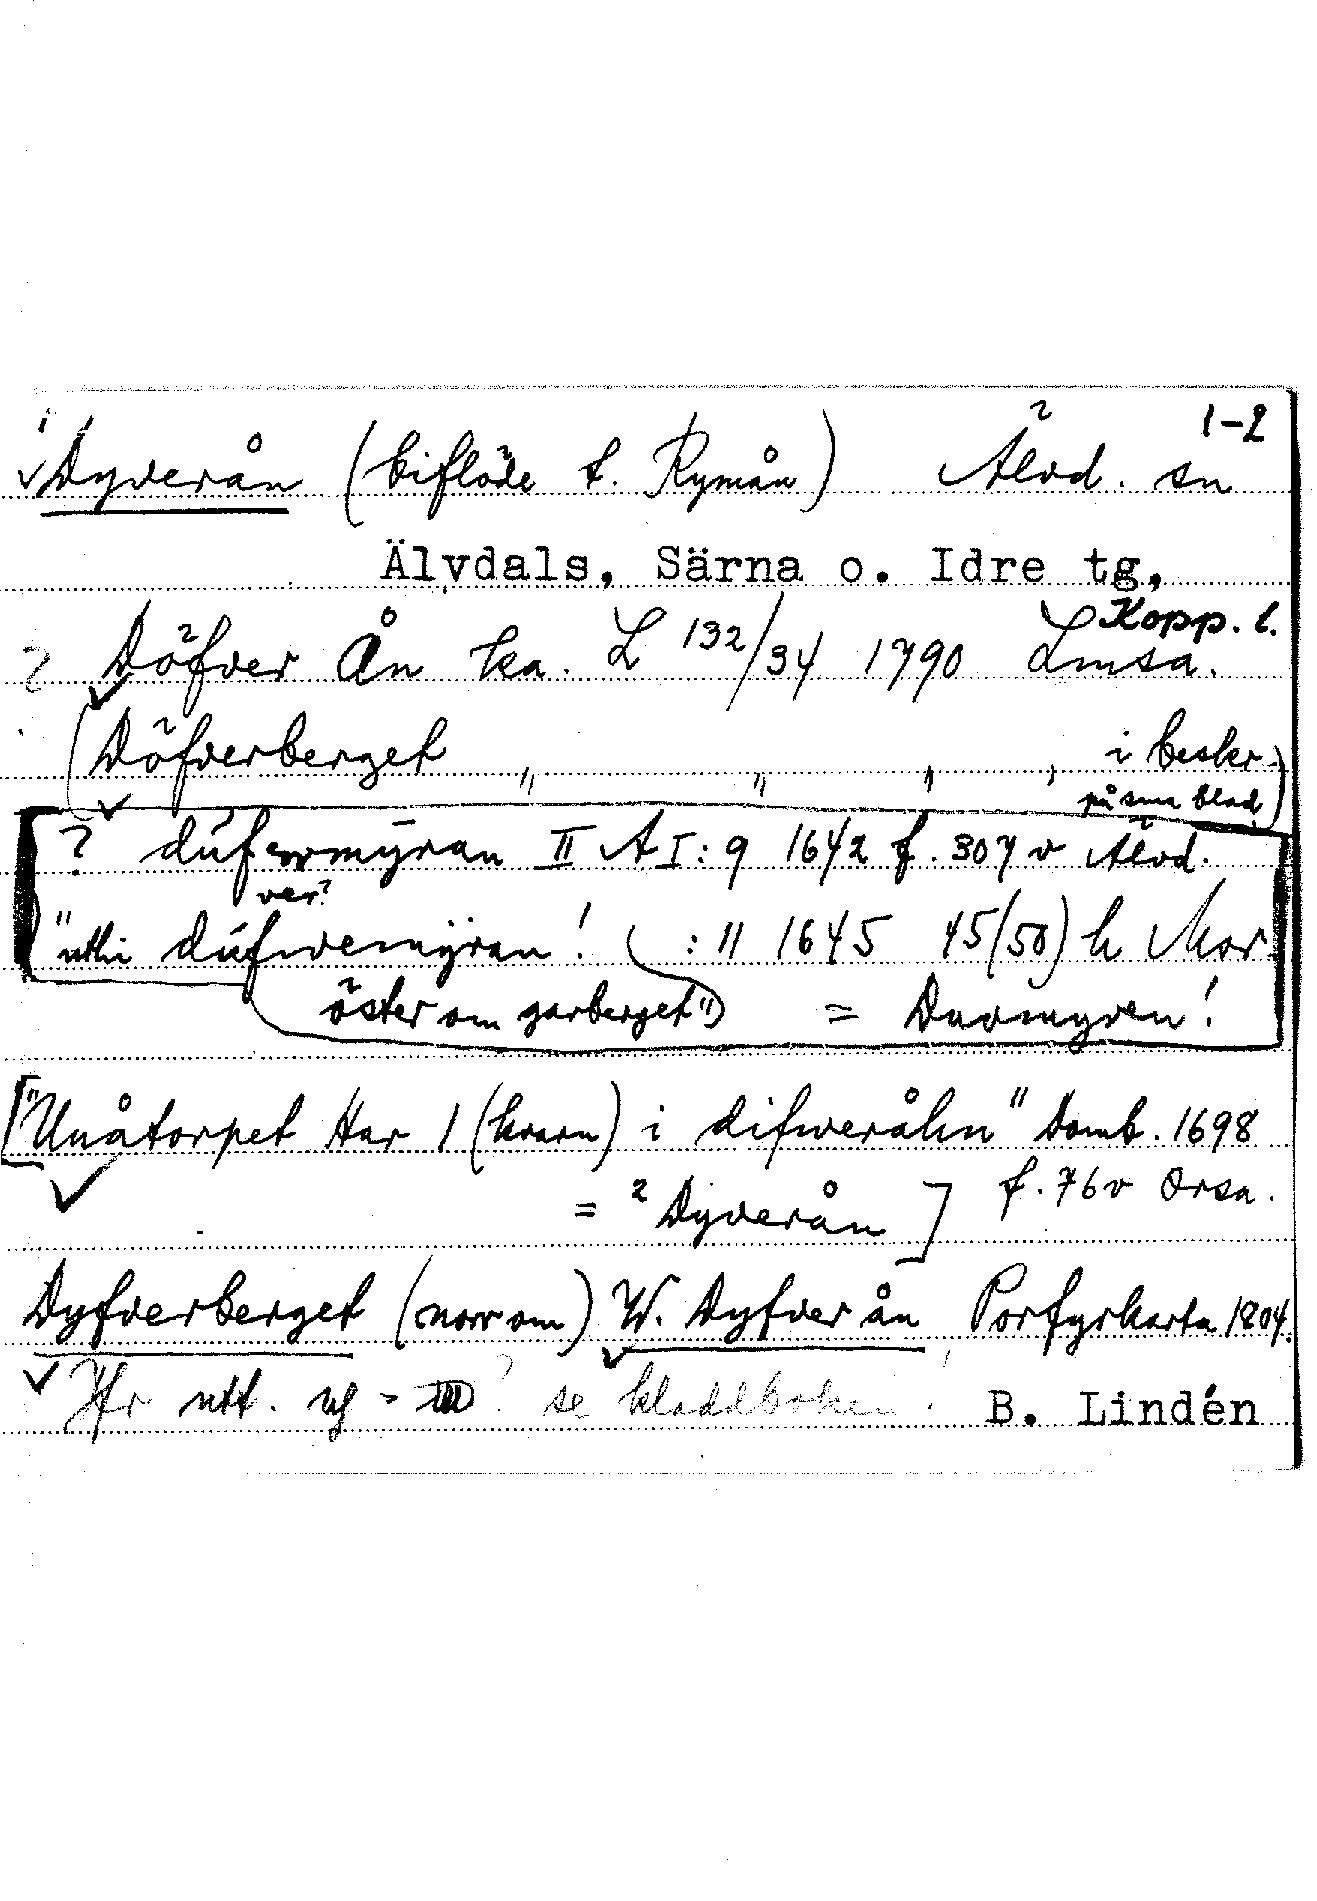 1-2
Dyverån (biflöde t. Rymån) Älvd. sn
Älvdals, Särna o. Idre tg,
Kopp. l.
? Döfver Ån ka. L 132/34 1790 Lmsa.
(Döfverberget " " " " i beskr.
på sma blad)
? dúfwermÿran II A I: 9 1642 f. 307 v Älvd.
ver?
"uthi dúfwemÿran! : 11 1645 45(50) h Mor
öster om garberget") = Duvmyren!
["Unåtorpet Har 1 (kvarn) i difweråhn" Domb. 1698
= Dyverån] f. 76 v Orsa.
Dyfverberget (norr om) W. Dyfver ån Porfyrkarta 1804.
Jfr utt. se kladdboken. B. Lindén